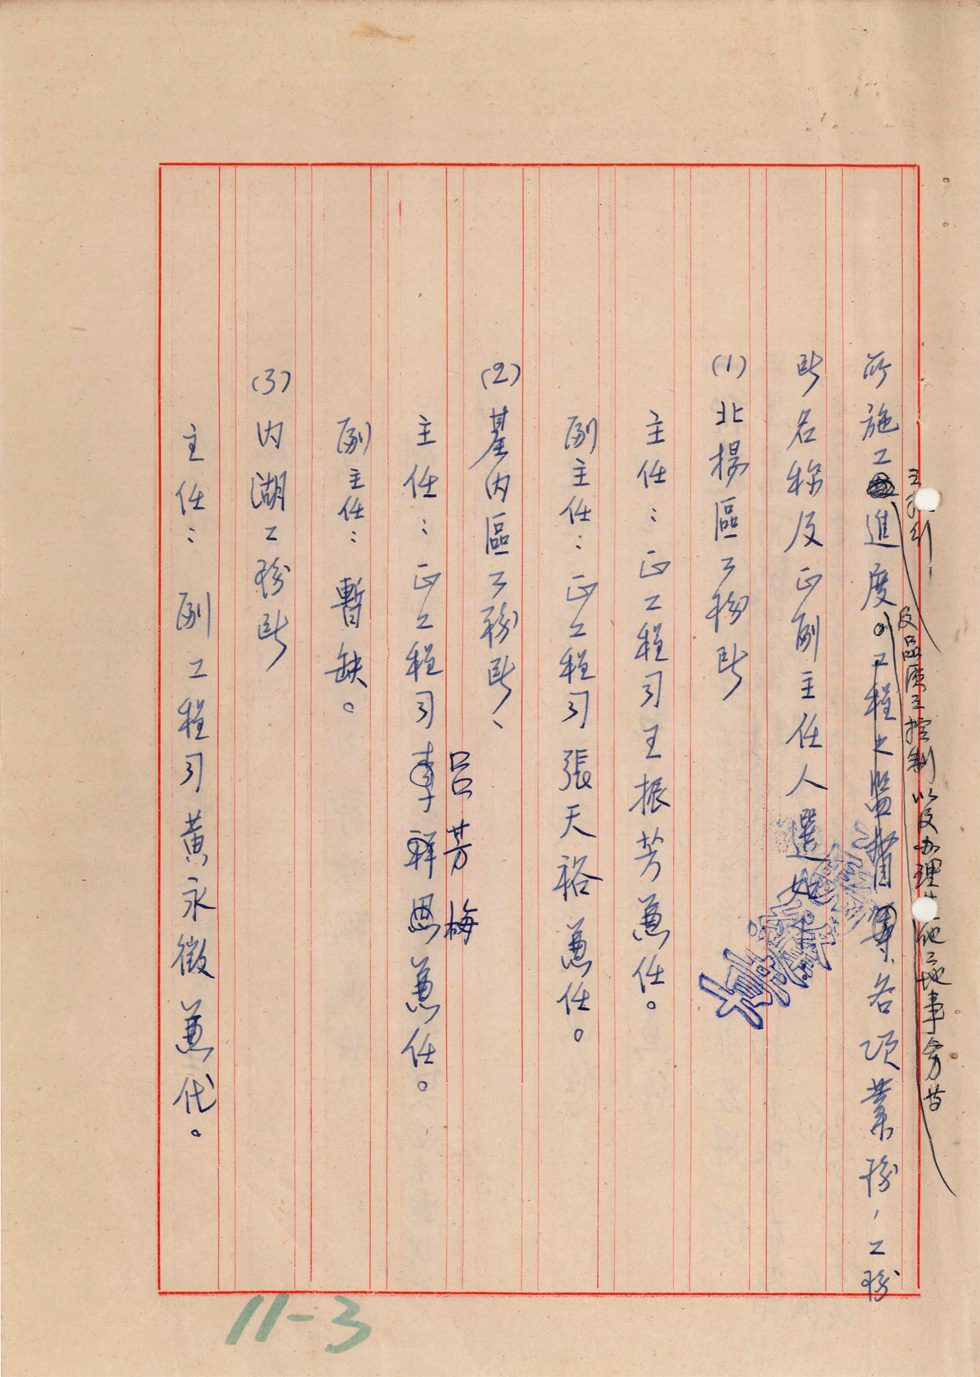 所施工進度工程之監督等各項業務，工務
及品質之控制以及办理其他工地事务等
所名称及正副主任人選如下
(1)北楊區工務所
主任：正工程司王振芳兼任。
副主任：正工程司張天裕兼任。
(2)基内區工務所、
主任：正工程司李祥恩兼任。
呂芳梅
副主任：暫缺。
(3)内湖工務所
主任：副工程司黃永徵兼代。
11-3